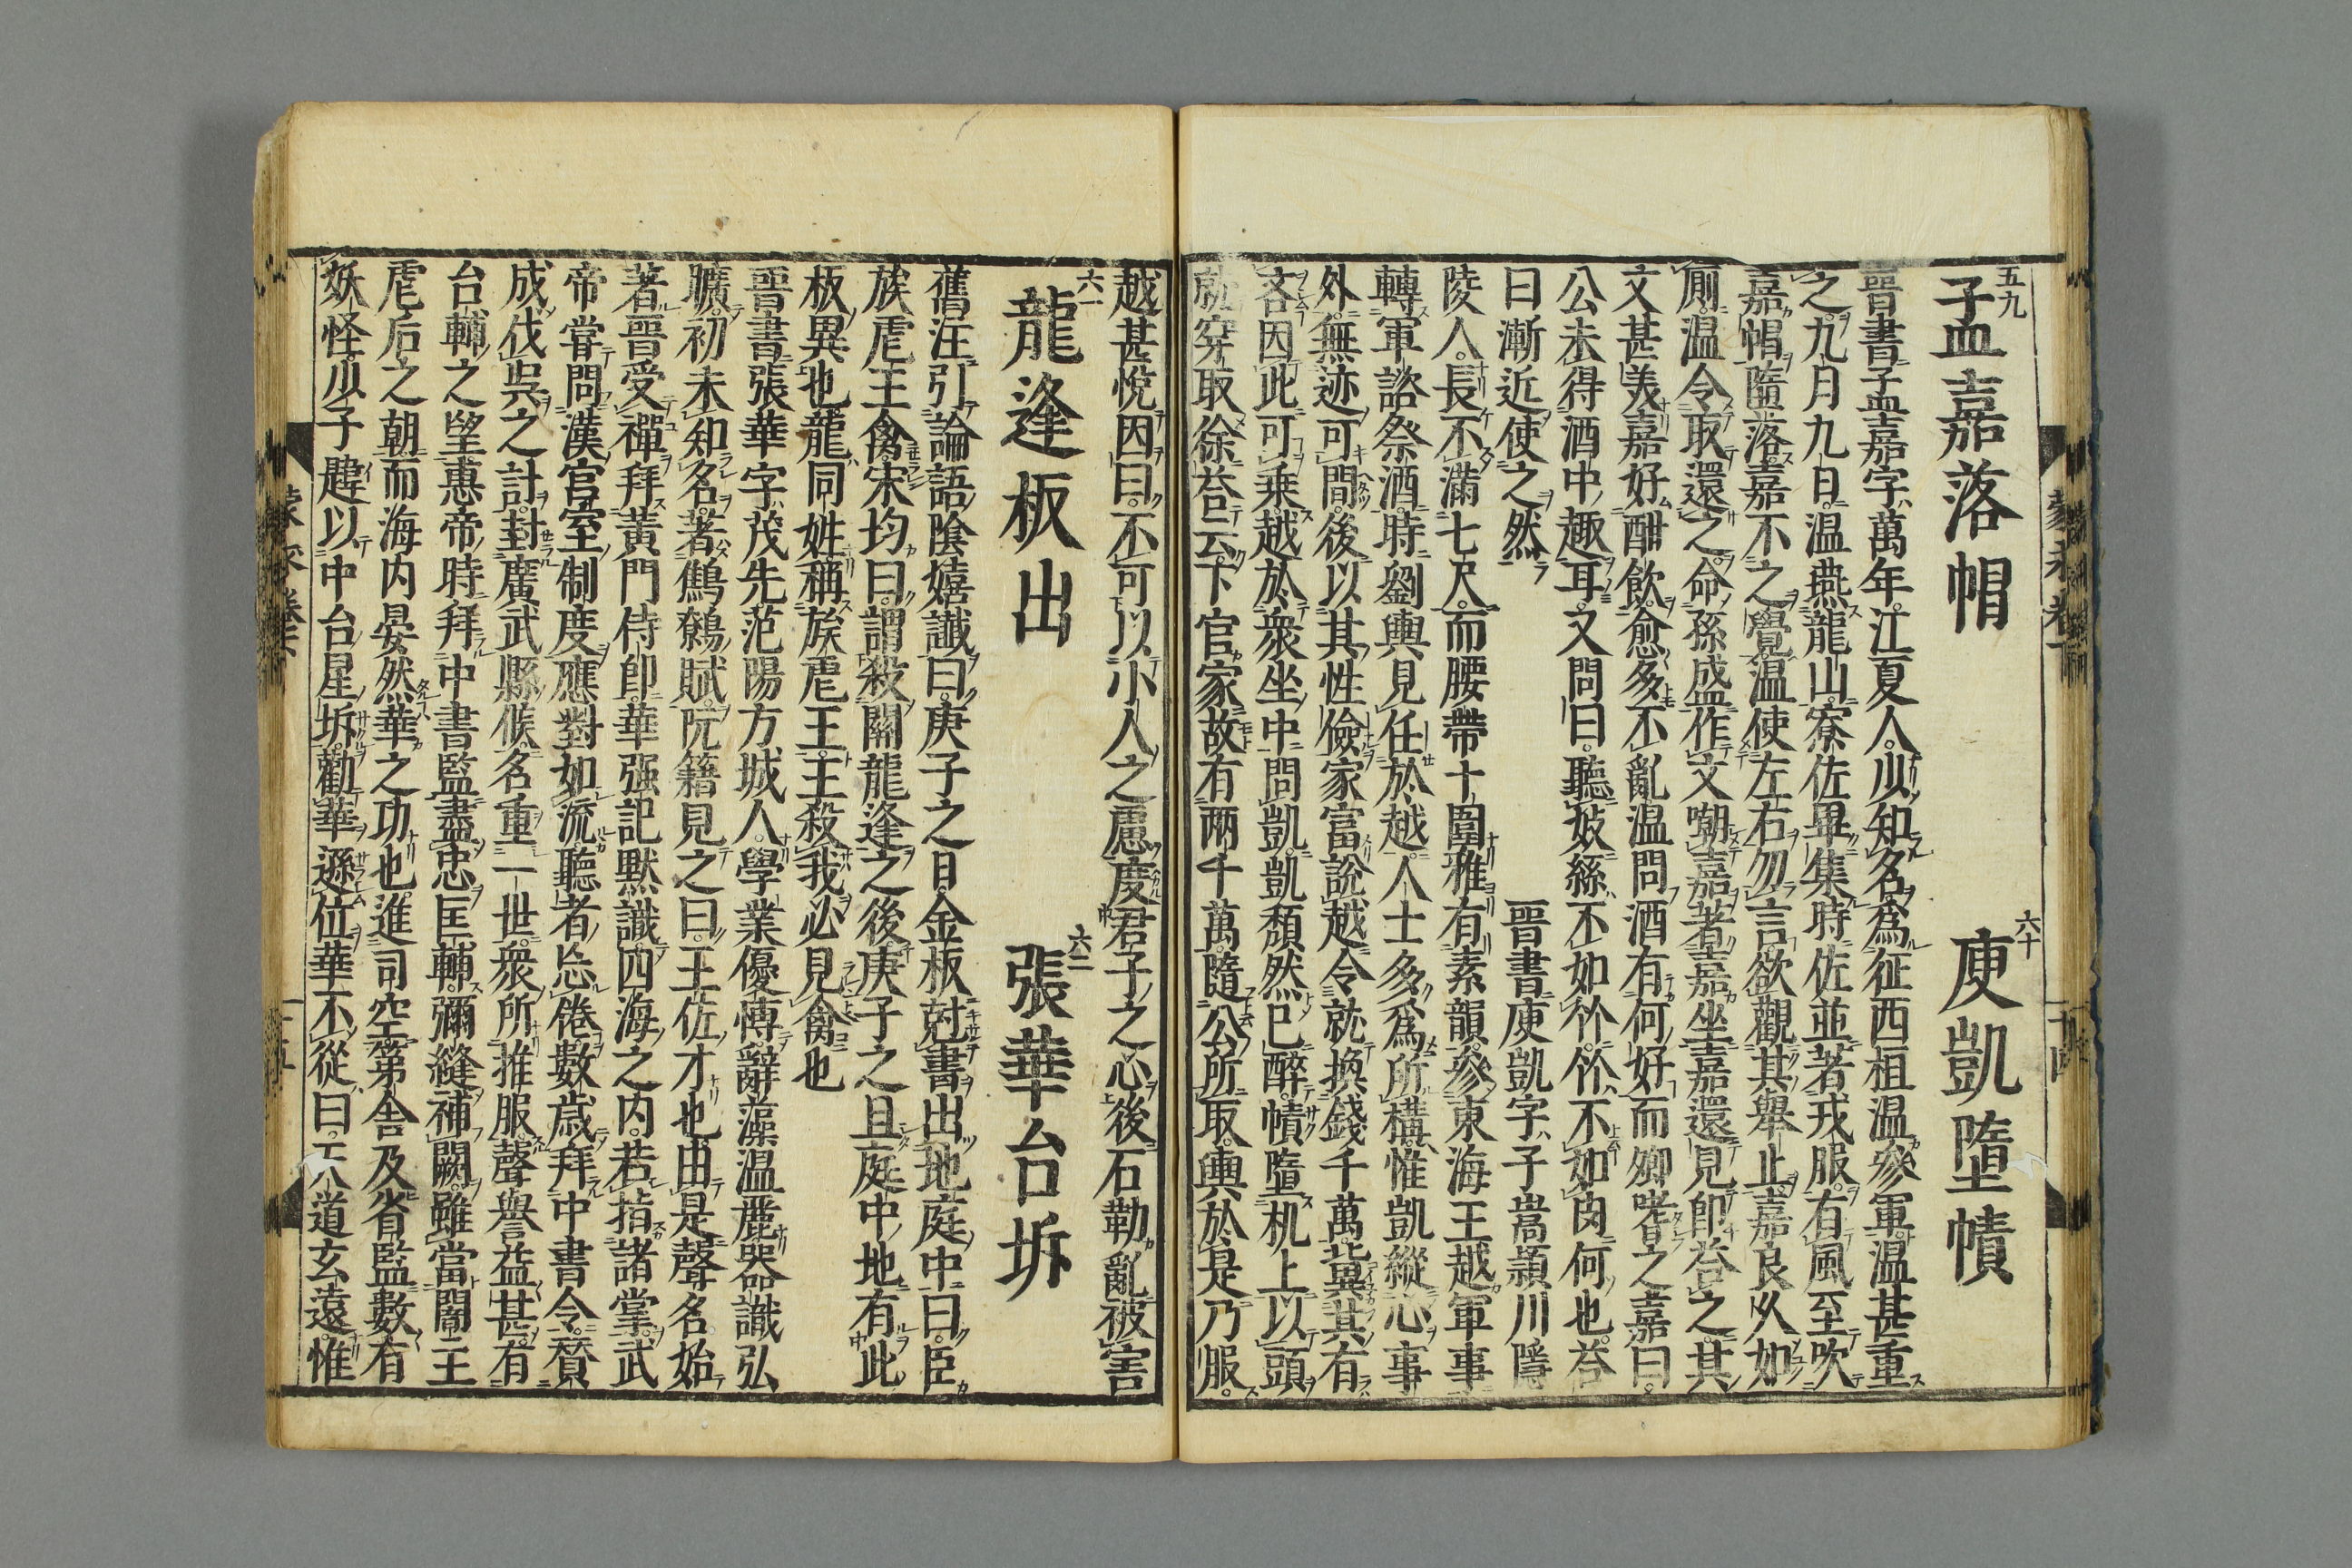 五九 孟嘉落帽 六十 庾凱墮幘
晉書孟嘉字萬年江夏人少知名爲征西桓温參軍温甚重
之九月九日温燕龍山寮佐畢集時佐並著戎服有風至吹
嘉帽墮落嘉不之覺温使左右勿言欲觀其舉止嘉良久如
厠温令取還之命孫盛作文嘲嘉著嘉坐嘉還見即荅之其
文甚美嘉好酣飲愈多不亂温問酒有何好而卿嗜之嘉曰
公未得酒中趣耳又問曰聽妓絲不如竹竹不如肉何也荅
曰漸近使之然 晉書庾凱字子嵩潁川隱
陵人長不滿七尺而腰帶十圍雅有素韻參東海王越軍事
轉軍諮祭酒時劉輿見任於越人士多爲所構惟凱縱心事
外無迹可間後以其性儉家富説越令就換錢千萬冀其有
吝因此可乘越於衆坐中問凱凱頽然已醉幘墮机上以頭
就穿取徐荅云下官家故有兩千萬隨公所取輿於是乃服
越甚悅因曰不可以小人之慮度君子之心後石勒亂被害
六一 龍逢板出 六二 張華台坼
舊注引論語陰嬉讖曰庚子之日金板尅書出地庭中曰臣
族虐王禽宋均曰謂殺關龍逢之後庚子之旦庭中地有此
板異也龍同姓稱族虐王王殺我必見禽也
晉書張華字茂先范陽方城人學業優博辭藻温麗器識弘
曠初未知名著鷦鷯賦阮籍見之曰王佐才也由是聲名始
著晉受禪拜黃門侍郎華强記默識四海之内若指諸掌武
帝甞問漢宫室制度應對如流聽者忘倦數歳拜中書令賛
成伐呉之計封廣武縣侯名重一世衆所推服聲譽益甚有
台輔之望惠帝時拜中書監盡忠匡輔彌縫補闕雖當闇主
虐后之朝而海内晏然華之功也進司空第舍及省監數有
妖怪少子韙以中台星坼勸華遜位華不從曰天道玄遠惟